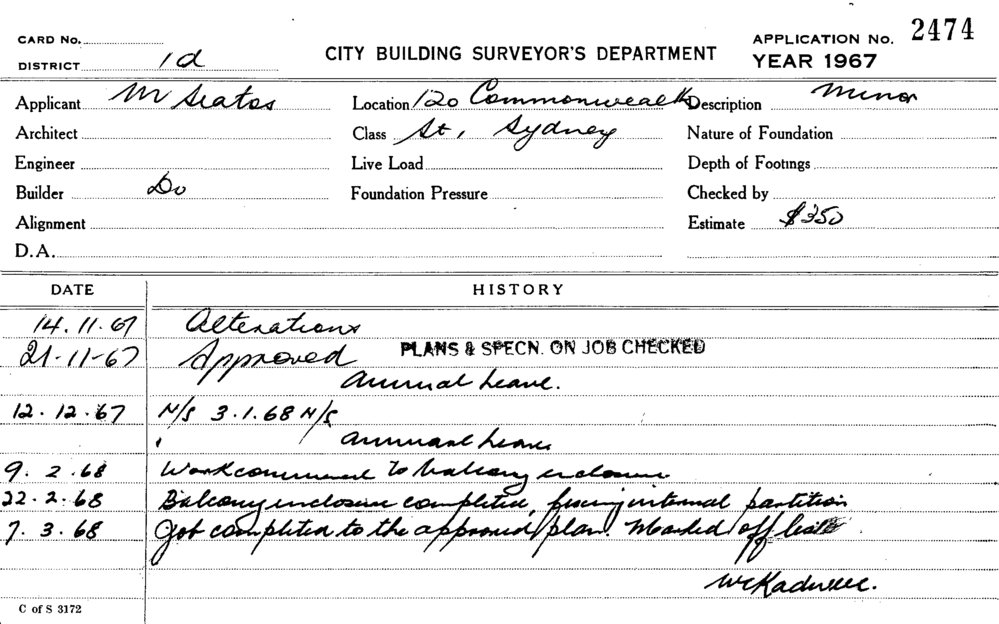 CARD No.
DISTRICT 1d
CITY BUILDING SURVEYOR'S DEPARTMENT
APPLICATION No. 2474
YEAR 1967
Applicant M Seatas Location 120 Commonwealth Description Minor
Architect Class St, Sydney Nature of Foundation
Engineer Live Load Depth of Footings
Builder Do Foundation Pressure Checked by
Alignment Estimate $350
D.A.
DATE HISTORY
14.11.67 Alterations
21-11-67 Approved PLANS & SPECN. ON JOB CHECKED
Annual Leave.
12.12.67 N/S 3.1.68 N/S
Annual Leave
9.2.68 Work commenced to balcony enclosure
22.2.68 Balcony enclosure completed, fixing internal partition
7.3.68 Job completed to the approved plan. Marked off
C of S 3172